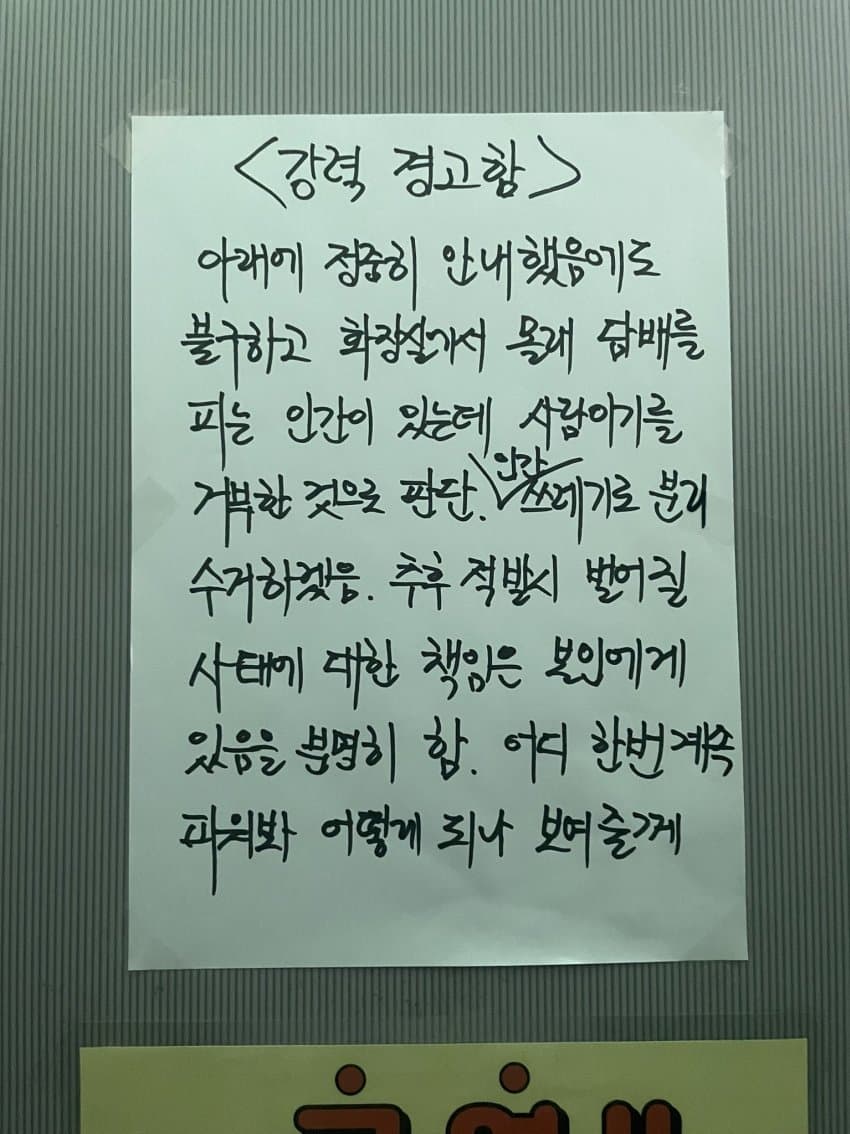 <강력 경고함>
아래에 정중히 안내했음에도
불구하고 화장실가서 몰래 담배를
피는 인간이 있는데 사람이기를
거부한 것으로 판단. 인간 쓰레기로 분리
수거하겠음. 추후 적발시 벌어질
사태에 대한 책임은 본인에게
있음을 분명히 함. 어디 한번 계속
펴워봐 어떻게 되나 보여줄게